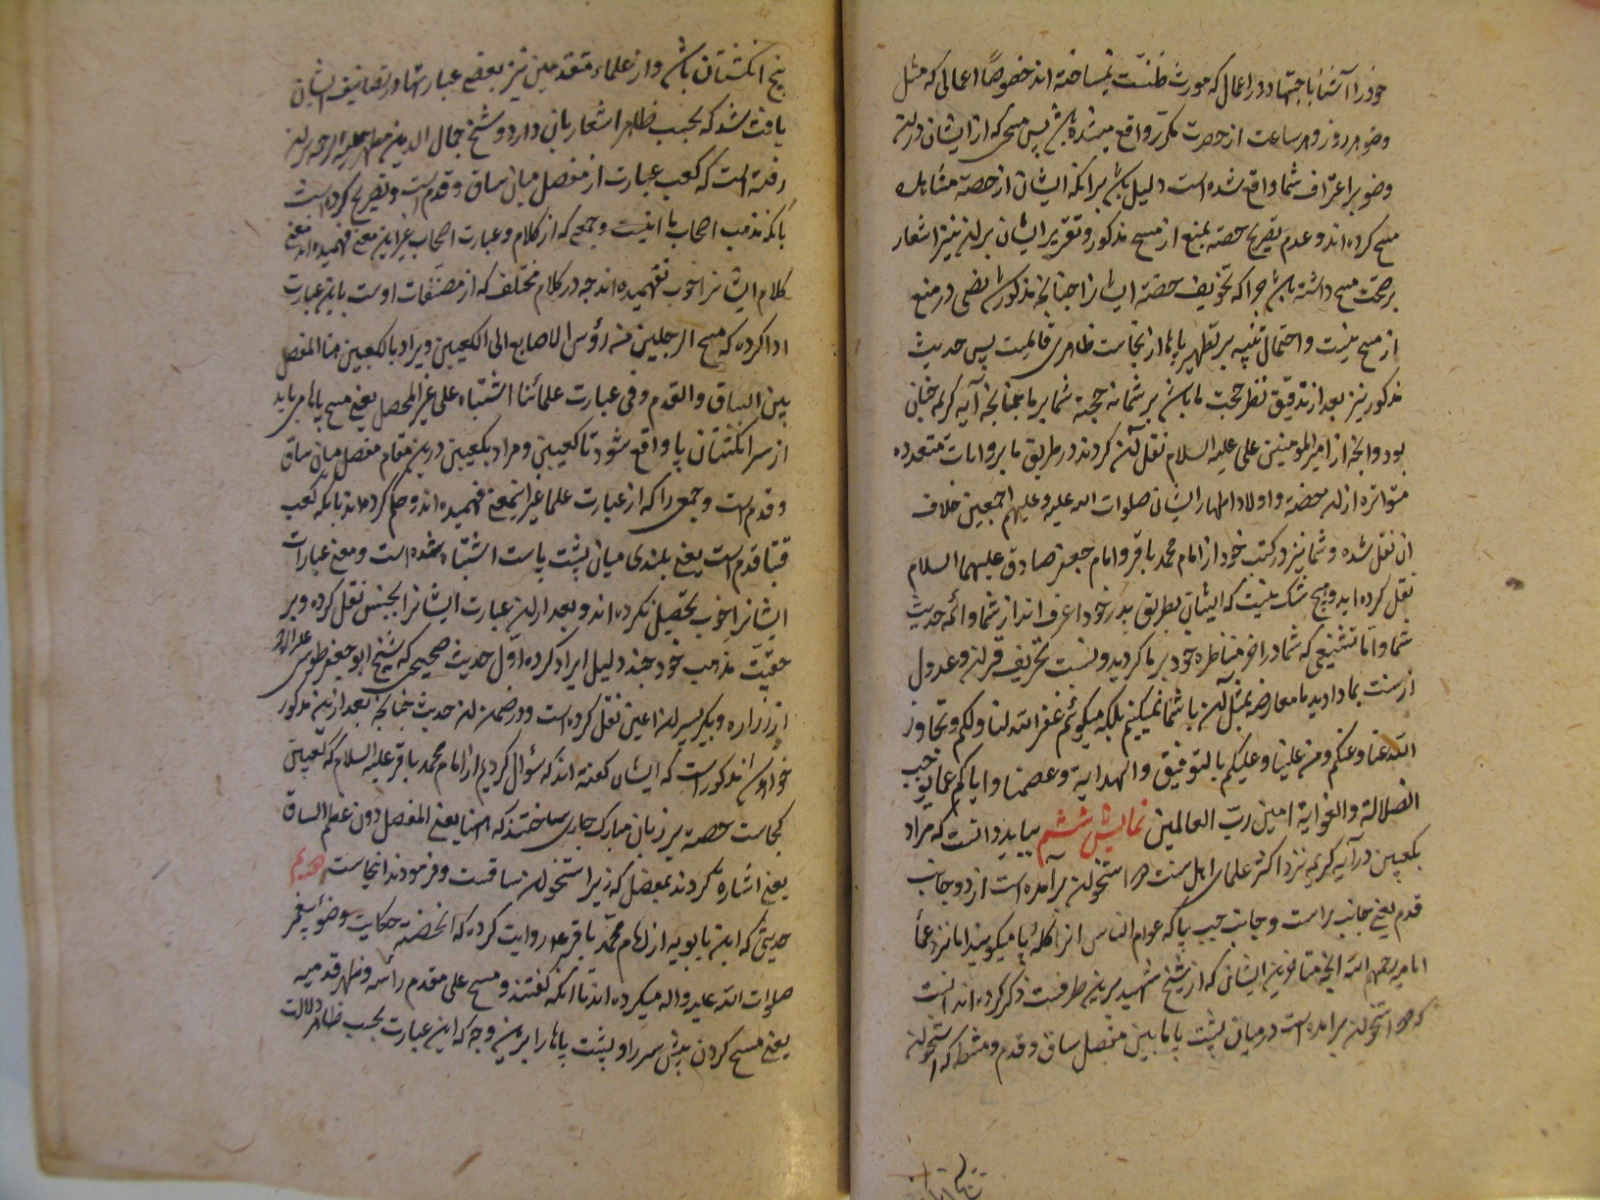 خود را آشنا باجتهاد در اعمال که مورث ظنست نمیساخته اند خصوصًا اعمالی که مثل
وضو هر روز و هر ساعت از حضرت مکرّر واقع میشده باشد پس مسحی که از ایشان در ان
وضو بر اعتراف شما واقع شده است دلیل باشد بر انکه ایشان از حضرت مشاهده
مسح کرده اند و عدم تصریح حضرت بمنع از مسح مذکور و تقریر ایشان بر ان نیز اشعار
بر صحت مسح داشته باشد چرا که تخویف حضرت ایشانرا چنانچه مذکور شد نصی در منع
از مسح نیست و احتمال تنبیه بر تطهیر پاها از نجاست ظاهری قائمست پس حدیث
مذکور نیز بعد از تدقیق نظر حجت ما باشد بر شما نه حجت شما بر ما چنانچه آیه کریمه چنان
بود و انچه از امیر المومنین علی علیه السلام نقل کردند در طریق ما بروایات متعدده
متواتره از ان حضرت و اولاد اطهار ایشان صلوات الله علیه و علیهم اجمعین خلاف
ان نقل شده و شما نیز در کتب خود از امام محمد باقر و امام جعفر صادق علیهما السلام
نقل کرده اید و هیچ شک نیست که ایشان بطریق پدر خود اعرف اند از شما و ائمه حدیث
شما و اما تشنیعی که شما در اخر مناظره خود بر ما کردید و نسبت تحریف قران و عدول
از سنت بما دادید ما معارضه بمثل آن با شما نمیکنیم بلکه میکوئیم غفر الله لنا و لکم و تجاوز
الله عنا و عنکم و من علینا و علیکم بالتوفیق والهدایة و عصمنا و ایاکم عما یوجب
الضلالة والغوایة امین رب العالمین نمایش ششم بباید دانست که مراد
بکعبین در آیه کریمه نزد اکثر علمای اهل سنت دو استخوان بر آمده است از دو جانب
قدم یعنی جانب راست و جانب چپ پا که عوام الناس انرا کلهٔ پا میکویند اما نزد علما
امامیه رحمهم الله انچه متاخرین ایشان که از شیخ شهید برین طرفست ذکر کرده اند انست
که دو استخوان برامده است در میان پشت پا ما بین مفصل ساق و قدم و مشط که استخوان
پنج انکشتان باشد و از علماء متقدمین نیز بعضی عبارتها در تصانیف ایشان
یافت شد که بحسب ظاهر اشعار بان دارد و شیخ جمال الدین مطهر علیه الرحمه بران
رفته است که کعب عبارت از مفصل میان ساق و قدم است و تصریح کرده است
بانکه مذهب اصحاب ما اینست و جمعی که از کلام و عبارت اصحاب غیر این معنی فهمیده اند معنی
کلام ایشانرا خوب نفهمیده اند چه در کلام مختلف که از مصنفات اوست باین عبارت
ادا کرده که مسح الرجلین من رؤس الاصابع الی الکعبین و یراد بالکعبین هنا المفصل
بین الساق والقدم و فی عبارت علمائنا اشتباه علی غیر المحصل یعنی مسح پاها می باید
از سر انکشتان پا واقع شود تا کعبین و مراد بکعبین درین مقام مفصل میان ساق
و قدم است و جمعی را که از عبارت علما غیر اینمعنی فهمیده اند و حکم کرده اند بانکه کعب
قبتا قدم است یعنی بلندی میان پشت پاست اشتباه شده است و معنی عبارات
ایشانرا خوب تحصیل نکرده اند و بعد از ان عبارت ایشانرا بجنس نقل کرده و بر
حقیت مذهب خود چند دلیل ایراد کرده اول حدیث صحیحی که شیخ ابو جعفر طوسی علیه الرحمه
از زراره و بکیر پسران اعین نقل کرده است و در ضمن ان حدیث چنانچه بعد ازین مذکور
خواهد شد مذکور است که ایشان کفته اند که سؤال کردیم از امام محمد باقر علیه السلام که کعبین
کجاست حضرت بر زبان مبارک جاری ساختند که اهنا یعنی المفصل دون عظم الساق
یعنی اشاره کردند بمفصل که زیر استخوان ساقست و فرمودند انجاست دویم
حدیثی که ابن بابویه از امام محمد باقر ع روایت کرده که انحضرت حکایت وضوئ پیغمبر
صلوات الله علیه و اله میکرده اند تا انکه کفتند و مسح علی مقدم راسه و ظهر قدمیه
یعنی مسح کردن پیش سر را و پشت پاها را برین وجه که این عبارت بحسب ظاهر دلالت